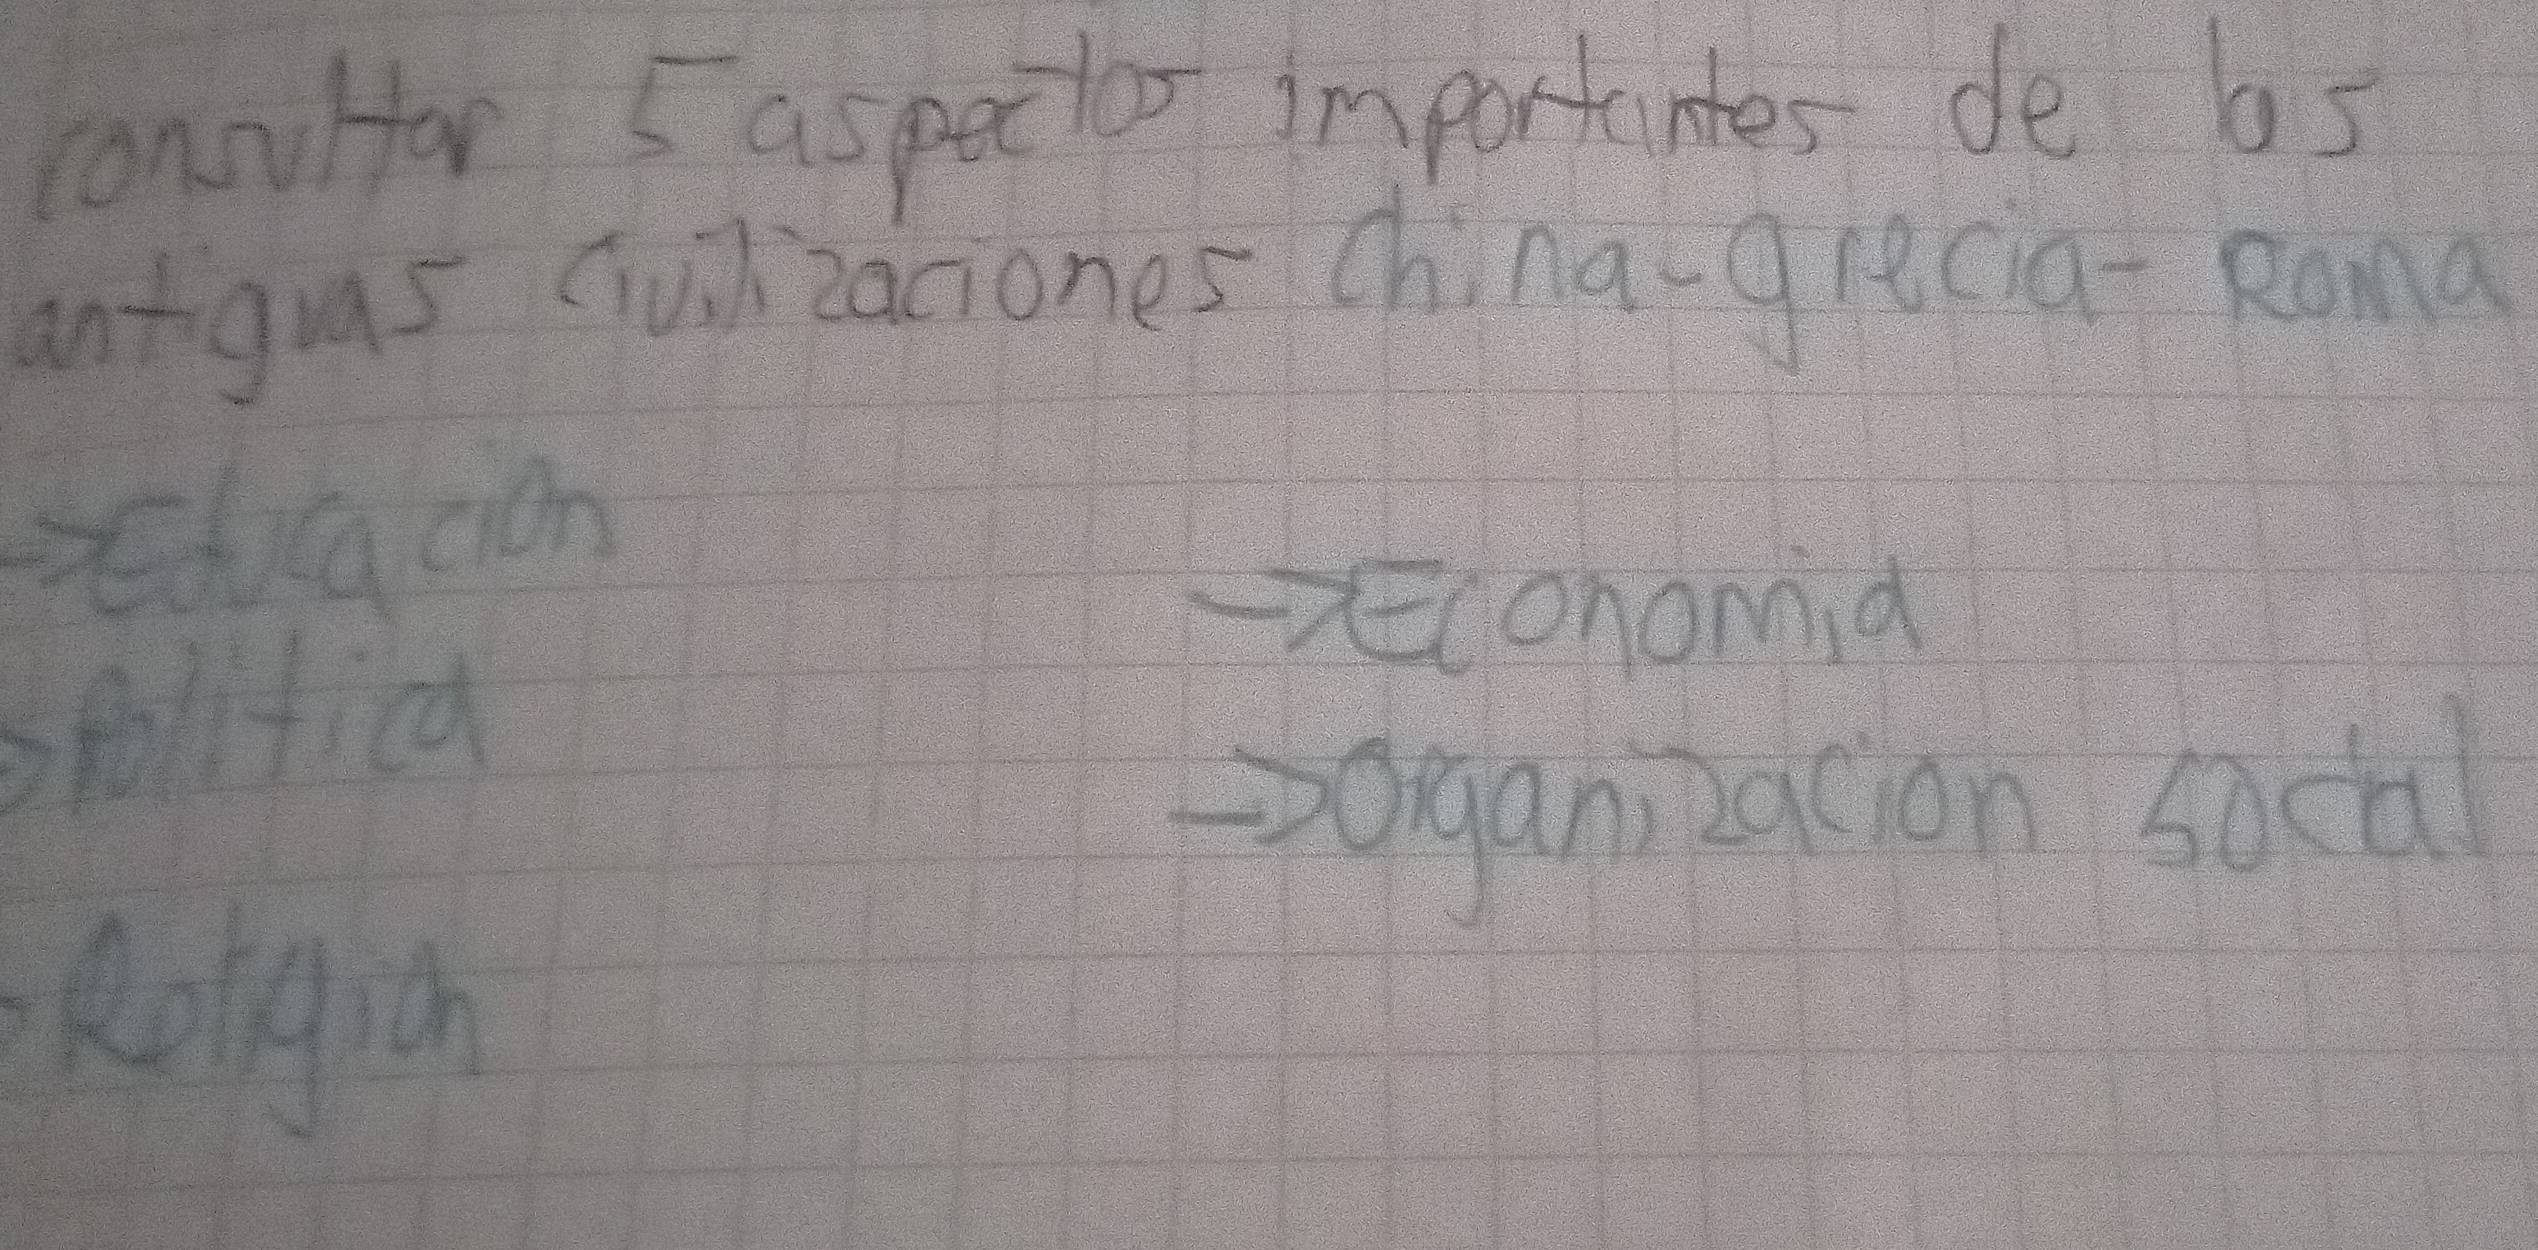 consultar 5 aspectos importantes de las
antiguas civilizaciones China-grecia-Roma
→Educación
→Economia
→Politica
→Organización social
-Religion